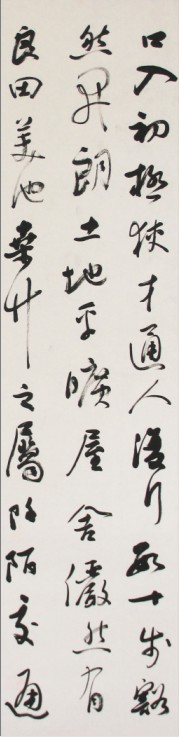 口入初極狹才通人復行數十步豁
然開朗土地平曠屋舍儼然有
良田美池桑竹之屬阡陌交通